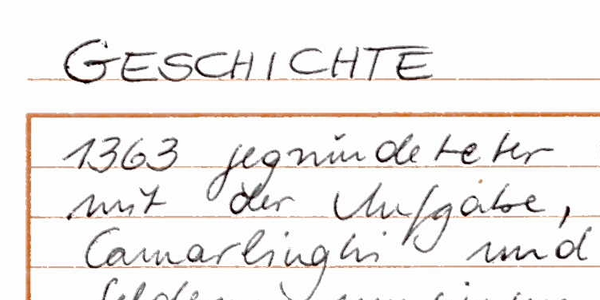 GESCHICHTE
1363 gegründeter
mit der Aufgabe,
Camarlinghi und